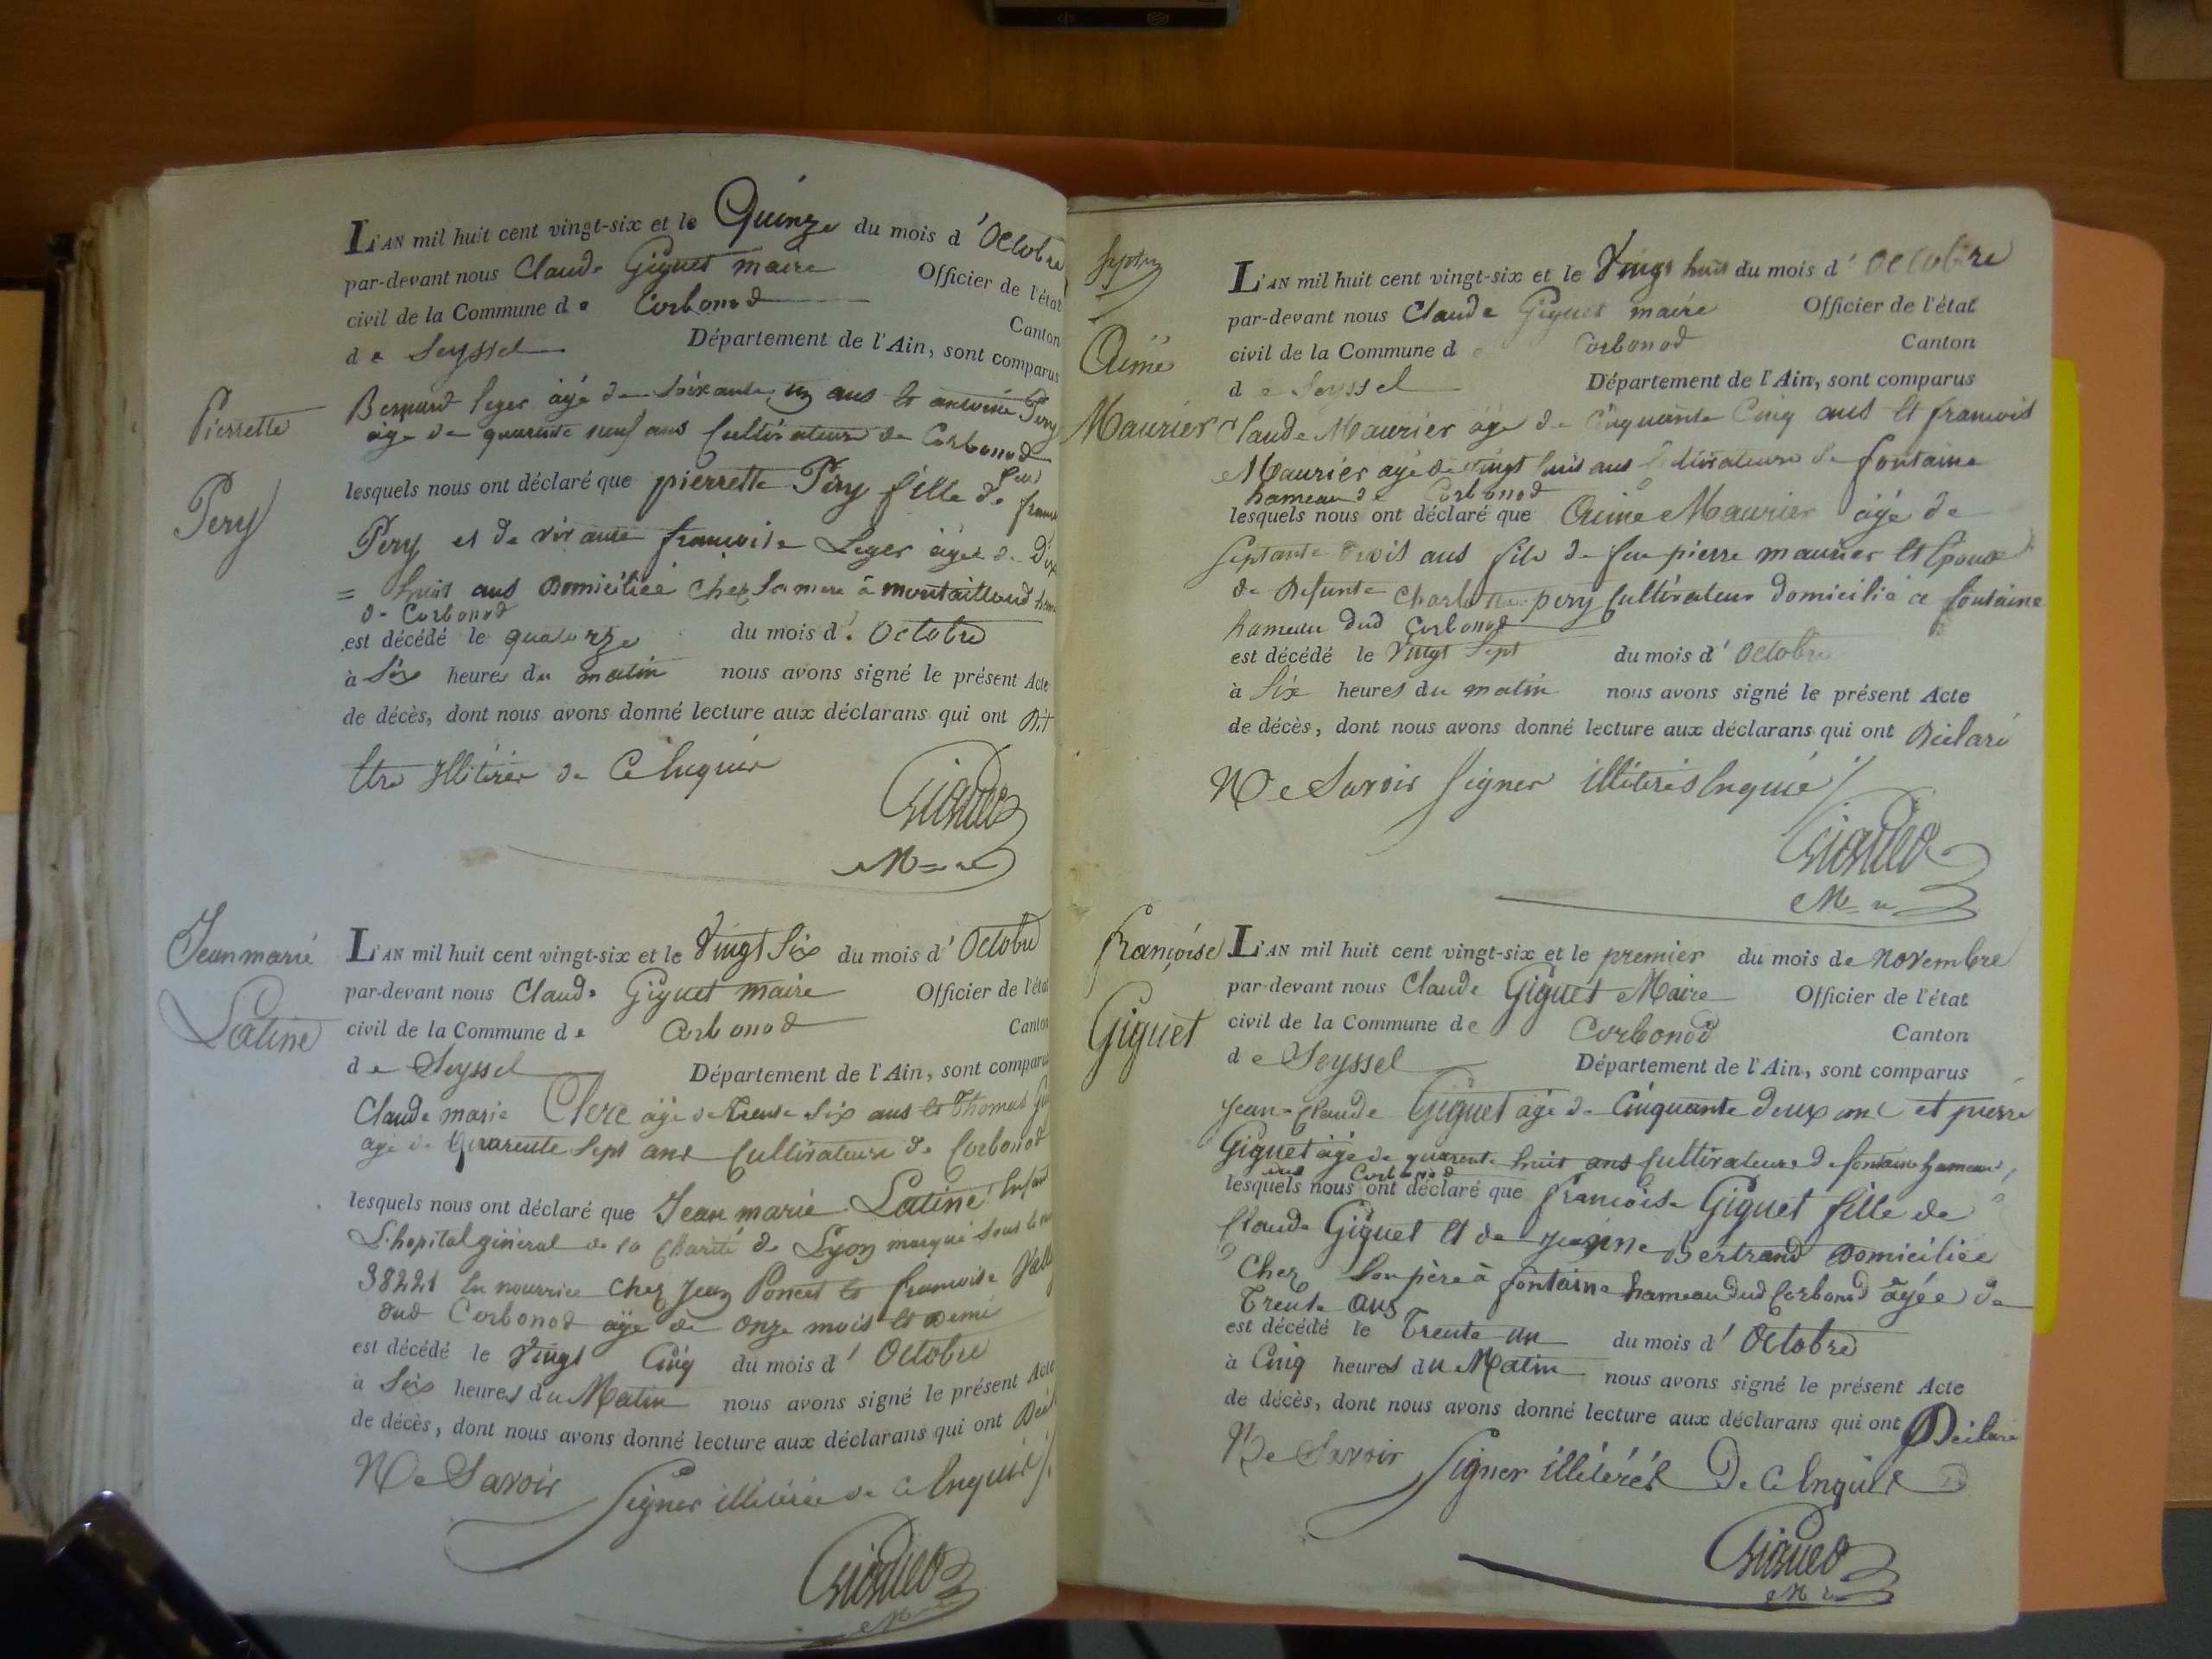 L'AN mil huit cent vingt-six et le Quinze du mois d'Octobre
par-devant nous Claude Giguet maire Officier de l'état
civil de la Commune de Corbonod Canton
de Seyssel Département de l'Ain, sont comparus
Pierrette
Pery
Bernard Leger âgé de Soixante un ans et antoine Pery
âgé de quarente neuf ans Cultivateurs de Corbonod
lesquels nous ont déclaré que pierrette Pery fille de feu
Pery et de vivante francoise Leger âgée de Dix
= huit ans Domiciliée chez Sa mere à montailloud
de Corbonod
est décédé le quatorze du mois d'Octobre
à Six heures du matin nous avons signé le présent Acte
de décès, dont nous avons donné lecture aux déclarans qui ont Dit
Etre Illitérer de Ce Inquir
Giguet
Jean marie
Latine
L'AN mil huit cent vingt-six et le Vingt Six du mois d'Octobre
par-devant nous Claude Giguet maire Officier de l'état
civil de la Commune de Corbonod Canton
de Seyssel Département de l'Ain, sont comparus
Claude marie Clerc âgé de Trente Six ans et Thomas
agé de Quarente Sept ans Cultivateurs de Corbonod
lesquels nous ont déclaré que Jean marie Latine Enfant
L'hopital général de la Charité de Lyon marqué Sous le
38221 En nourrice chez Jean Poncet et francoise
dud Corbonod âgé de onze mois et Demi
est décédé le Vingt Cinq du mois d'Octobre
à Six heures du Matin nous avons signé le présent Acte
de décès, dont nous avons donné lecture aux déclarans qui ont
Ne Savoir Signer illitérée de Ce Inquir
Giguet
Aimé
Maurier
L'AN mil huit cent vingt-six et le Vingt huit du mois d'Octobre
par-devant nous Claude Giguet maire Officier de l'état
civil de la Commune de Corbonod Canton
de Seyssel Département de l'Ain, sont comparus
Claude Maurier âgé de Cinquante Cinq ans Et francois
Maurier agé de vingt huit ans Cultivateurs de fontaine
hameau de Corbonod
lesquels nous ont déclaré que Aimé Maurier âgé de
Septante trois ans fils de feu pierre maurier Et Epoux
de Defunte pery Cultivateur domicilié a fontaine
hameau dud Corbonod
est décédé le Vingt Sept du mois d'Octobre
à Six heures du matin nous avons signé le présent Acte
de décès, dont nous avons donné lecture aux déclarans qui ont Déclaré
Ne Savoir Signer illitérés Inquié
Giguet
Françoise
Giguet
L'AN mil huit cent vingt-six et le premier du mois de Novembre
par-devant nous Claude Giguet Maire Officier de l'état
civil de la Commune de Corbonod Canton
de Seyssel Département de l'Ain, sont comparus
Jean-Claude Giguet âgé de Cinquante deux ans et pierre
Giguet âgé de quarente huit ans Cultivateurs de fontaine hameau
dud Corbonod
lesquels nous ont déclaré que francoise Giguet fille de
Claude Giguet Et de Jeanne Bertrand Domiciliée
Chez Son père à fontaine hameau dud Corbonod âgée de
Trente ans
est décédé le Trente un du mois d'Octobre
à Cinq heures du Matin nous avons signé le présent Acte
de décès, dont nous avons donné lecture aux déclarans qui ont Déclaré
Ne Savoir Signer illitérés De Ce Inquis
Giguet